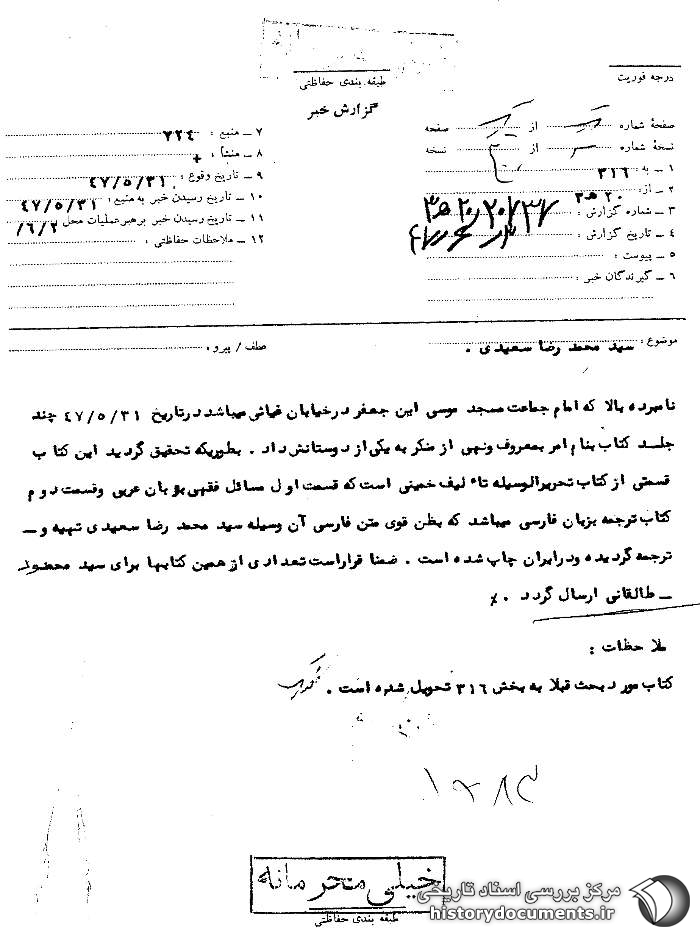 طبقه بندی حفاظتی
درجه فوریت
گزارش خبر
صفحهٔ شماره از صفحه
نسخهٔ شماره از نسخه
۱ ــ به : ۳۱۶
۲ ــ از : ۲۰ ه‍ ۳
۳ ــ شماره گزارش :
۴ ــ تاریخ گزارش :
۵ ــ پیوست :
۶ ــ گیرندگان خبر :
۷ ــ منبع : ۷۲۴
۸ ــ منشأ : +
۹ ــ تاریخ وقوع : ۴۷/۵/۳۱
۱۰ ــ تاریخ رسیدن خبر به منبع : ۴۷/۵/۳۱
۱۱ ــ تاریخ رسیدن خبر برهبر عملیات محل ۶/۲/
۱۲ ــ ملاحظات حفاظتی :
موضوع : سید محمد رضا سعیدی .
عطف / پیرو :
نامبرده بالا که امام جماعت مسجد موسی ابن جعفر در خیابان غیاثی میباشد در تاریخ ۴۷/۵/۳۱ چند
جلد کتاب بنام امر بمعروف ونهی از منکر به یکی از دوستانش داد . بطوریکه تحقیق گردید این کتا ب
قسمتی از کتاب تحریرالوسیله تاء لیف خمینی است که قسمت او ل مسائل فقهی بزبان عربی وقسمت دو م
کتاب ترجمه بزبان فارسی میباشد که بظن قوی متن فارسی آن وسیله سید محمد رضا سعیدی تهیه و ــ
ترجمه گردیده ودرایران چاپ شده است . ضمنا قراراست تعدادی از همین کتابها برای سید محمود
ــ طالقانی ارسال گردد . ٪
ملاحظات :
کتاب مورد بحث قبلا به بخش ۳۱۶ تحویل شده است .
خیلی محرمانه
طبقه بندی حفاظتی
مرکز بررسی اسناد تاریخی
historydocuments.ir